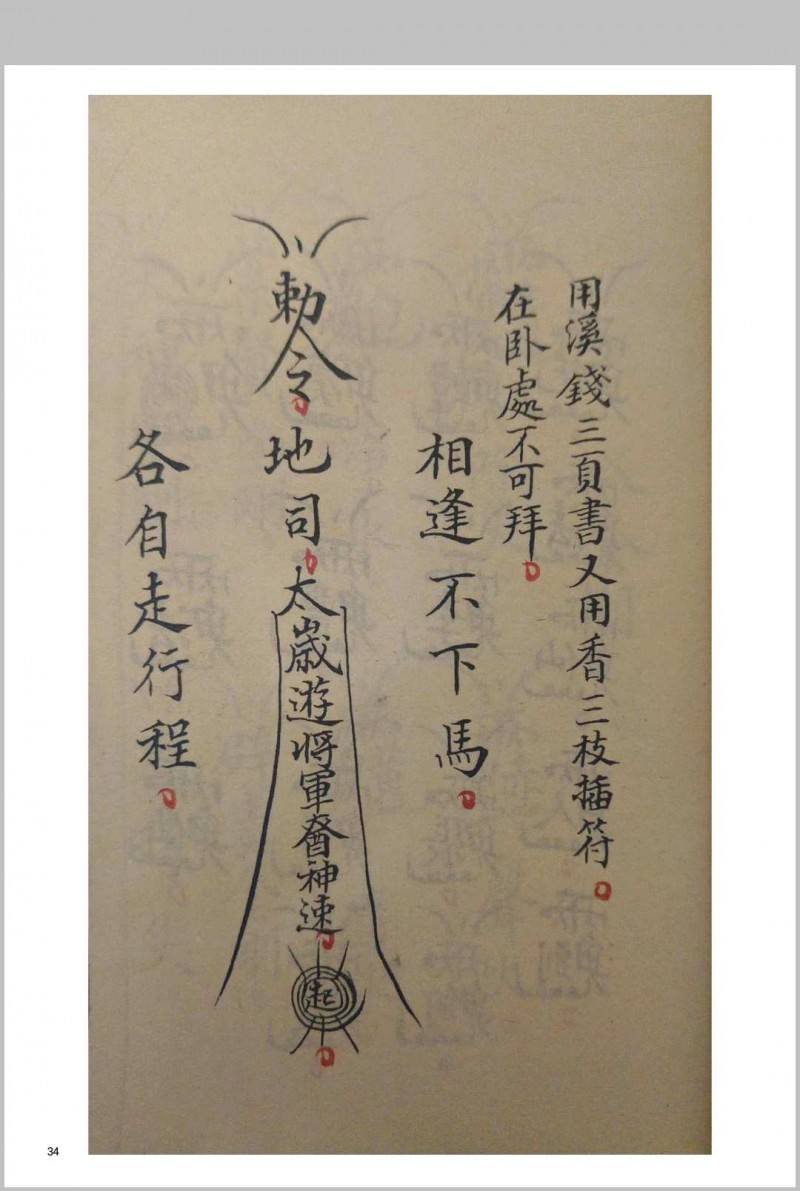 用溪錢三頁書又用香三枝插符
在卧處不可拜
相逢不下馬
勅令地司太歲遊將軍奮神速
起
各自走行程
34